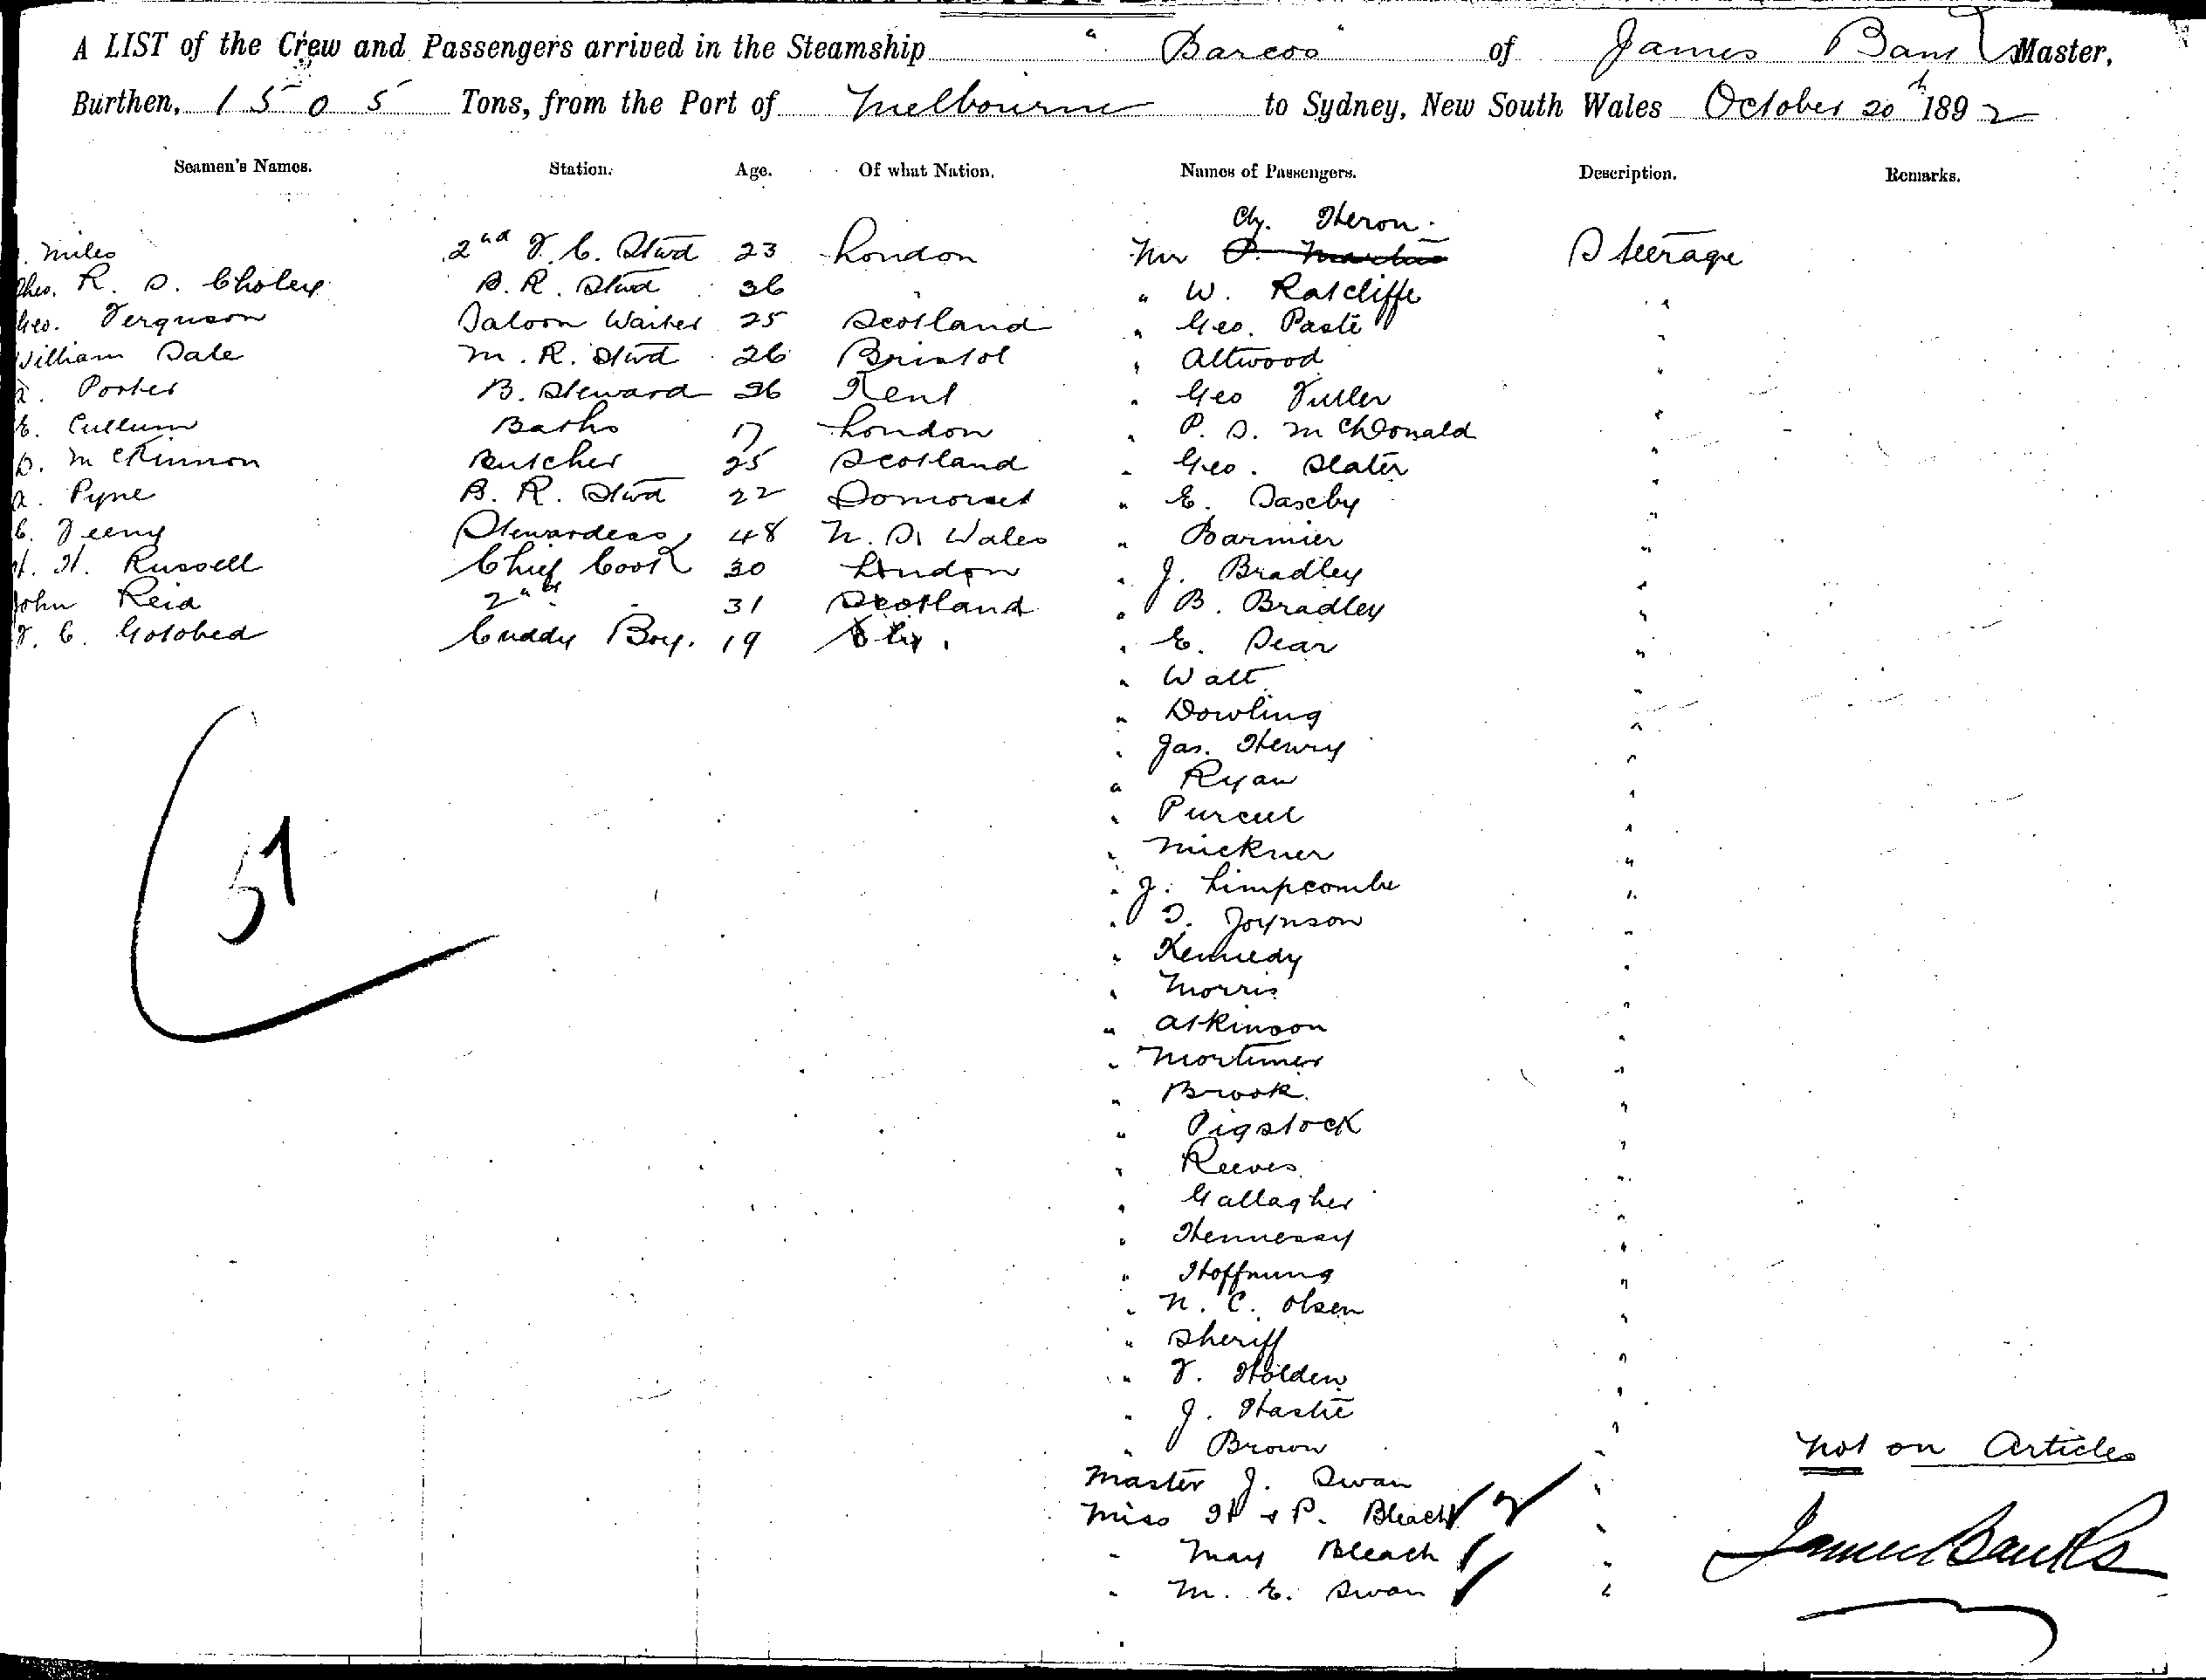 A LIST of the Crew and Passengers arrived in the Steamship "Barcoo" of James Banks Master,
Burthen, 1505 Tons, from the Port of Melbourne to Sydney, New South Wales October 20th 1892
Seamen's Names. Station. Age. Of what Nation. Names of Passengers. Description. Remarks.
Chy. Heron.
Miles 2nd F. C. Stwd 23 London Mr Steerage
R. S. Choley B. R. Stwd 36 " W. Ratcliffe "
Geo. Ferguson Saloon Waiter 25 Scotland " Geo. Paste "
William Sale M. R. Stwd 26 Bristol " Attwood "
Porter B. Steward 36 Kent " Geo Fuller "
E. Cullum Baths 17 London " P. S. McDonald "
D. McKinnon Butcher 25 Scotland " Geo. Slater "
Pyne B. R. Stwd 22 Somerset " E. Saxby "
C. Feeny Stewardess 48 N. S. Wales " Barmier "
H. H. Russell Chief Cook 30 London " J. Bradley "
John Reid 2nd " 31 Scotland " B. Bradley "
F. C. Gotobed Cuddy Boy. 19 Ely. " E. Sear "
" Watt "
" Dowling "
" Jas. Henry "
" Ryan "
" Purcell "
" Mickner "
" J. Limpcombe "
" T. Joynson "
" Kennedy "
" Morris "
" Atkinson "
" Mortimer "
" Brook. "
" Pigstock "
" Reeves "
" Gallagher "
" Hennessy "
" Hoffnung "
" N. C. Olsen "
" Sheriff "
" F. Holden "
" J. Hastie "
" Brown "
Master J. Swan "
Miss H & P. Bleach 2 "
" May Bleach "
" M. E. Swan "
51
Not on Articles
James Banks